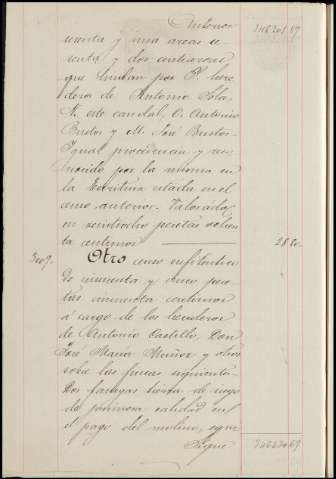 Anterior 34620189
renta y una areas se
senta y dos centiareas
que lindan por P. here
deros de Antonio Sola,
N. este caudal, O. Antonio
Bustos y M. José Bustos.
Igual procedencia y reco
nocido por la misma en
la Escritura citada en el
censo anterior. Valorado
en veintiocho pesetas ochen
ta centimos 28 80.
3109. Otro censo enfiteutico
de cincuenta y cinco pese
tas cincuenta centimos
á cargo de los herederos
de Antonio Castillo, Don
José Maria Muñoz y otros
sobre las fincas siguientes.
Dos fanegas tierra de riego
de primera calidad en
el pago del molino, equi
Sigue 34623069